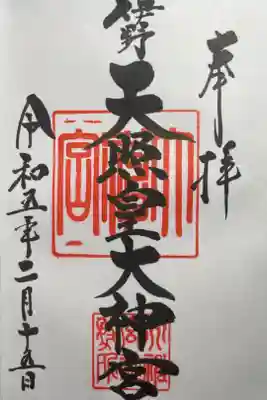 奉拝
伊野
天照皇大神宮
令和五年二月十五日